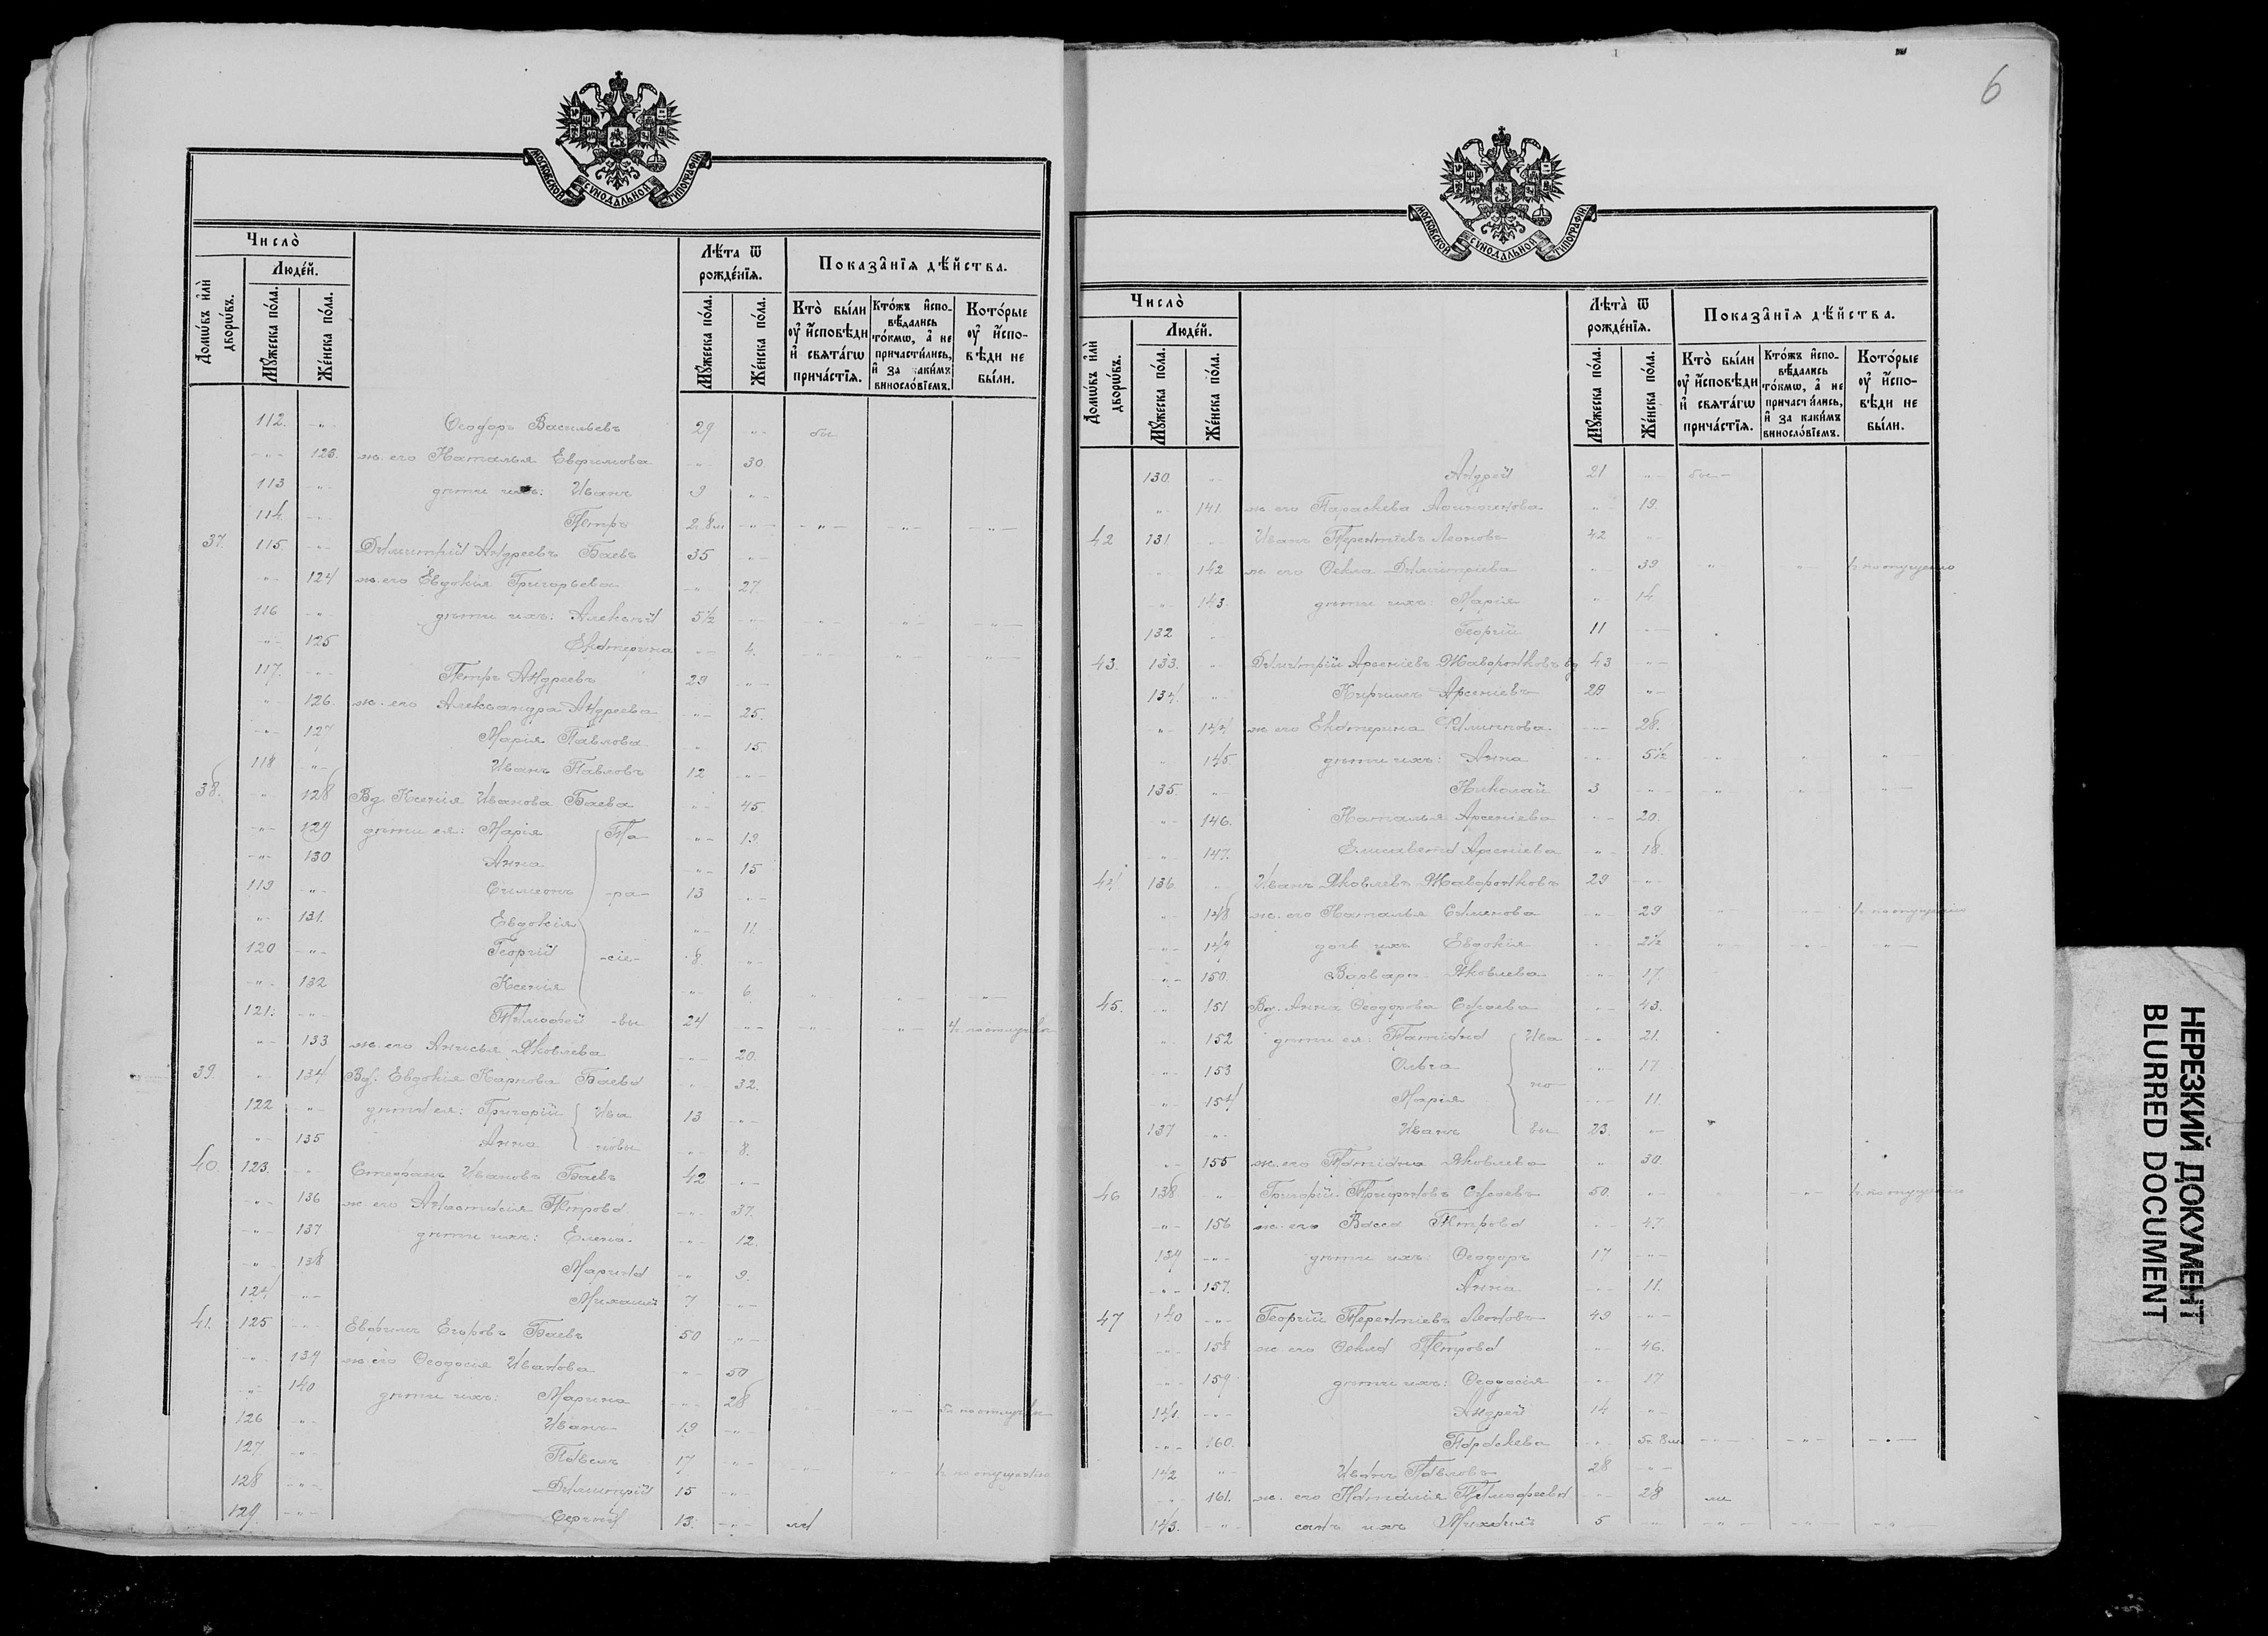 6
МОСКОВСКОЙ СѴНОДАЛЬНОЙ ТИПОГРАФІИ.
Число̀
Люде́й.
Домѡ́въ и҆лѝ дворѡ́въ.
Мꙋ́жеска по́ла.
Же́нска по́ла.
Лѣ́та ѿ рожде́нїѧ.
Мꙋ́жеска по́ла.
Же́нска по́ла.
Показа̂нїѧ дѣ́йства.
Кто̀ бы́ли ᲂу҆ и҆́сповѣди и҆ свѧта́гѡ прича́стїѧ.
Кто́жъ и҆спо-вѣ́дались то́кмѡ, а҆ не причасти́лись, и҆ за каки́мъ винословїемъ.
Кото́рые ᲂу҆ и҆́спо-вѣди не бы́ли.
112. -„- Ѳеодоръ Васильевъ 29 -„- бы
-„- 123. ж. его Наталья Евфимова -„- 30
113 -„- дѣти ихъ: Иванъ 9 -„-
114 -„- Петръ 2. 8 м -„- -„- -„- -„-
37. 115 -„- Димитрій Андреевъ Баевъ 35 -„-
-„- 124 ж. его Евдокія Григорьева -„- 27.
116 -„- дѣти ихъ: Алексѣй 5½ -„- -„- -„- -„-
-„- 125 Екатерина -„- 4. -„- -„- -„-
117. -„- Петръ Андреевъ 29 -„-
-„- 126. ж. его Александра Андреева -„- 25.
-„- 127 Марія Павлова -„- 15.
118 -„- Иванъ Павловъ 12 -„-
38. -„- 128 Вд. Ксенія Иванова Баева -„- 45
-„- 129 дѣти ея: Марія Та- -„- 19
-„- 130 Анна -„- 15
119 -„- Симеонъ -ра- 13 -„-
-„- 131. Евдокія -„- 11
120 -„- Георгій -сіе- 8 -„-
-„- 132 Ксенія -„- 6 -„- -„- -„-
121. -„- Тимофей -вы 24 -„- -„- -„- по отлучкѣ
-„- 133 ж. его Анисья Яковлева -„- 20.
39. -„- 134 Вд. Евдокія Карпова Баева -„- 32.
122 -„- дѣти ея: Григорій Ива 13 -„-
-„- 135 Анна новы -„- 8.
40. 123. -„- Стефанъ Ивановъ Баевъ 42 -„-
-„- 136 ж. его Анастасія Петрова -„- 37.
-„- 137 дѣти ихъ: Елена -„- 12.
-„- 138 Марина -„- 9.
124 -„- Михаилъ 7 -„-
41. 125 -„- Евфимъ Егоровъ Баевъ 50 -„-
-„- 139 ж. его Ѳеодосія Иванова -„- 50
-„- 140 дѣти ихъ: Марина -„- 28 -„- по отлучкѣ
126 -„- Иванъ 19 -„-
127. -„- Павелъ 17 -„- -„- по опущенію
128 -„- Димитрій 15 -„-
129. -„- Сергѣй 13. -„- ли
МОСКОВСКОЙ СѴНОДАЛЬНОЙ ТИПОГРАФІИ.
Число̀
Люде́й.
Домѡ́въ и҆лѝ дворѡ́въ.
Мꙋ́жеска по́ла.
Же́нска по́ла.
Лѣ́та ѿ рожде́нїѧ.
Мꙋ́жеска по́ла.
Же́нска по́ла.
Показа̂нїѧ дѣ́йства.
Кто̀ бы́ли ᲂу҆ и҆́сповѣди и҆ свѧта́гѡ прича́стїѧ.
Кто́жъ и҆спо-вѣ́дались то́кмѡ, а҆ не причасти́лись, и҆ за каки́мъ винословїемъ.
Кото́рые ᲂу҆ и҆́спо-вѣди не бы́ли.
130. -„- Андрей 21 -„- бы-
-„- 141. ж. его Параскева -„- 19.
42 131 -„- Иванъ Терентіевъ Леоновъ 42 -„-
-„- 142 ж. его Ѳекла Димитріева -„- 39 -„- -„- по опущенію
-„- 143. дѣти ихъ: Марія -„- 14
132 -„- Георгій 11 -„-
43. 133. -„- Димитрій Арсеніевъ Жаворонковъ вд 43 -„-
134. -„- Кириллъ Арсеніевъ 29 -„-
-„- 144 ж. его Екатерина Филиппова -„- 28.
-„- 145. дѣти ихъ: Анна -„- 5½ -„- -„- -„-
135. -„- Николай 3 -„- -„- -„- -„-
-„- 146. Наталья Арсеніева -„- 20.
-„- 147. Елисавета Арсеніева -„- 18.
44 136. -„- Иванъ Яковлевъ Жаворонковъ 29 -„-
-„- 148 ж. его Наталья Симонова -„- 29 -„- -„- по опущенію
-„- 149 дочь ихъ Евдокія -„- 2½ -„- -„- -„-
-„- 150. Варвара Яковлева -„- 17
45. -„- 151 Вд. Анна Ѳеодорова -„- 43.
-„- 152 дѣти ея: Татіана Ива -„- 21.
-„- 153 Ольга -„- 17
-„- 154 Марія но- -„- 11.
137 -„- Иванъ вы 23. -„-
-„- 155 ж. его Татіана Яковлева -„- 30
46 138 -„- Григорій Трифоновъ 50. -„- -„- -„- по опущенію
-„- 156 ж. его Васса Петрова -„- 47
139 -„- дѣти ихъ: Ѳеодоръ 17 -„-
-„- 157. Анна -„- 11.
47 140 -„- Георгій Терентіевъ Леоновъ 49 -„-
-„- 158 ж. его Ѳекла Петрова -„- 46.
-„- 159 дѣти ихъ: Ѳеодосія -„- 17
141. -„- Андрей 14 -„-
-„- 160. Параскева -„- 5. 8 м -„- -„- -„-
142 -„- Иванъ Павловъ 28 -„-
-„- 161. ж. его Наталія Тимофеева -„- 28 ли
143. -„- сынъ ихъ Михаилъ 5 -„- -„- -„- -„-
НЕРЕЗКИЙ ДОКУМЕНТ
BLURRED DOCUMENT